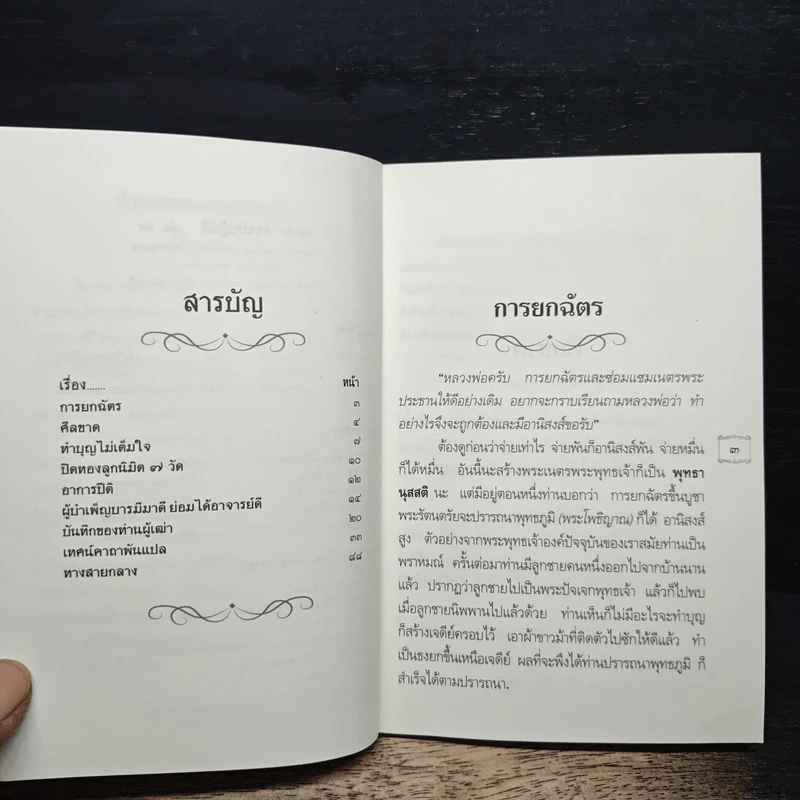 สารบัญ
เรื่อง....... หน้า
การยกฉัตร ๓
ศีลขาด ๔
ทำบุญไม่เต็มใจ ๗
ปิดทองลูกนิมิต ๗ วัด ๑๐
อาการปีติ ๑๒
ผู้บำเพ็ญบารมีมาดี ย่อมได้อาจารย์ดี ๑๔
บันทึกของท่านผู้เฒ่า ๒๐
เทศน์คาถาพันแปล ๓๓
ทางสายกลาง ๘๘
การยกฉัตร
"หลวงพ่อครับ การยกฉัตรและซ่อมแซมเนตรพระ
ประธานให้ดีอย่างเดิม อยากจะกราบเรียนถามหลวงพ่อว่า ทำ
อย่างไรจึงจะถูกต้องและมีอานิสงส์ขอรับ"
ต้องดูก่อนว่าจ่ายเท่าไร จ่ายพันก็อานิสงส์พัน จ่ายหมื่น
ก็ได้หมื่น อันนี้นะสร้างพระเนตรพระพุทธเจ้าก็เป็น พุทธา
นุสสติ นะ แต่มีอยู่ตอนหนึ่งท่านบอกว่า การยกฉัตรขึ้นบูชา
พระรัตนตรัยจะปรารถนาพุทธภูมิ (พระโพธิญาณ) ก็ได้ อานิสงส์
สูง ตัวอย่างจากพระพุทธเจ้าองค์ปัจจุบันของเราสมัยท่านเป็น
พราหมณ์ ครั้นต่อมาท่านมีลูกชายคนหนึ่งออกไปจากบ้านนาน
แล้ว ปรากฏว่าลูกชายไปเป็นพระปัจเจกพุทธเจ้า แล้วก็ไปพบ
เมื่อลูกชายนิพพานไปแล้วด้วย ท่านเห็นก็ไม่มีอะไรจะทำบุญ
ก็สร้างเจดีย์ครอบไว้ เอาผ้าขาวม้าที่ติดตัวไปซักให้ดีแล้ว ทำ
เป็นธงยกขึ้นเหนือเจดีย์ ผลที่จะพึงได้ท่านปรารถนาพุทธภูมิ ก็
สำเร็จได้ตามปรารถนา.
๓